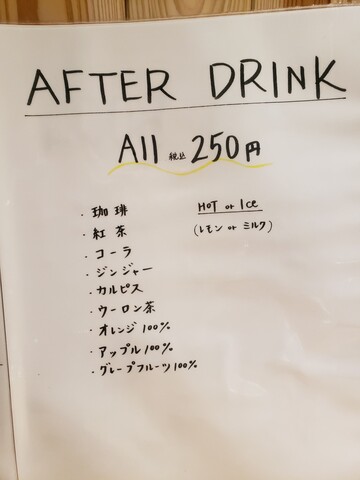 AFTER DRINK
All 税込 250円
・珈琲 HOT or Ice
・紅茶 (レモン or ミルク)
・コーラ
・ジンジャー
・カルピス
・ウーロン茶
・オレンジ100%
・アップル100%
・グレープフルーツ100%